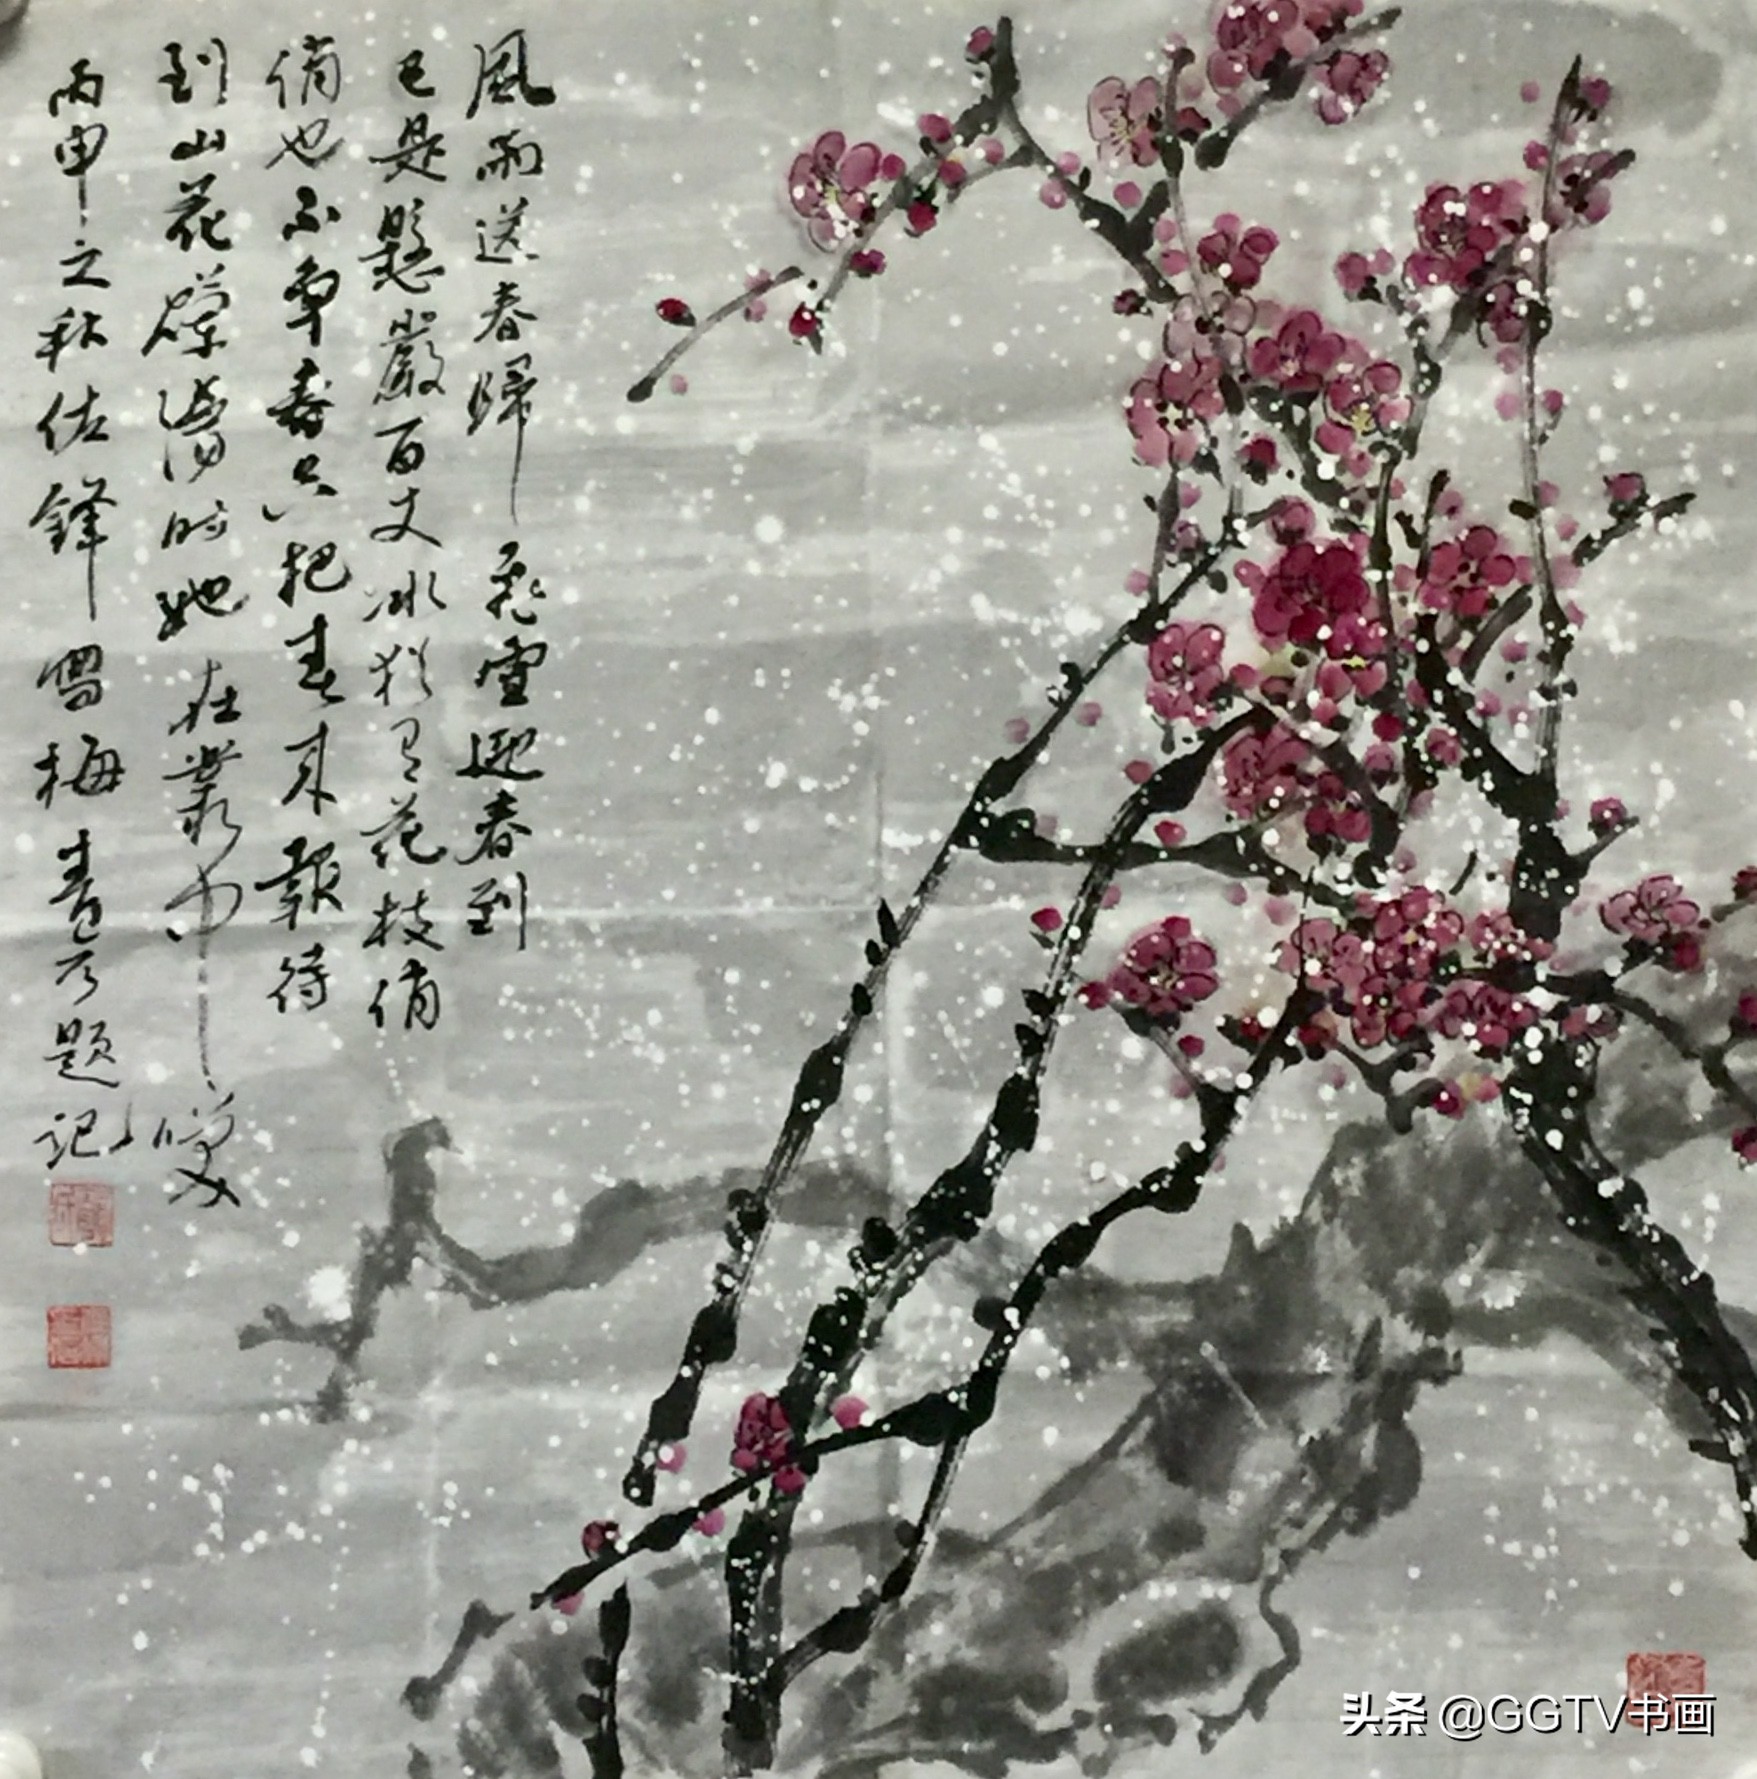 風雨送春歸 飛雪迎春到
已是懸巖百丈冰猶有花枝俏
俏也不爭春只把春來報待
到山花爛漫時她在叢中笑
丙申之秋佐鋒 梅 题记
头条 @GGTV书画